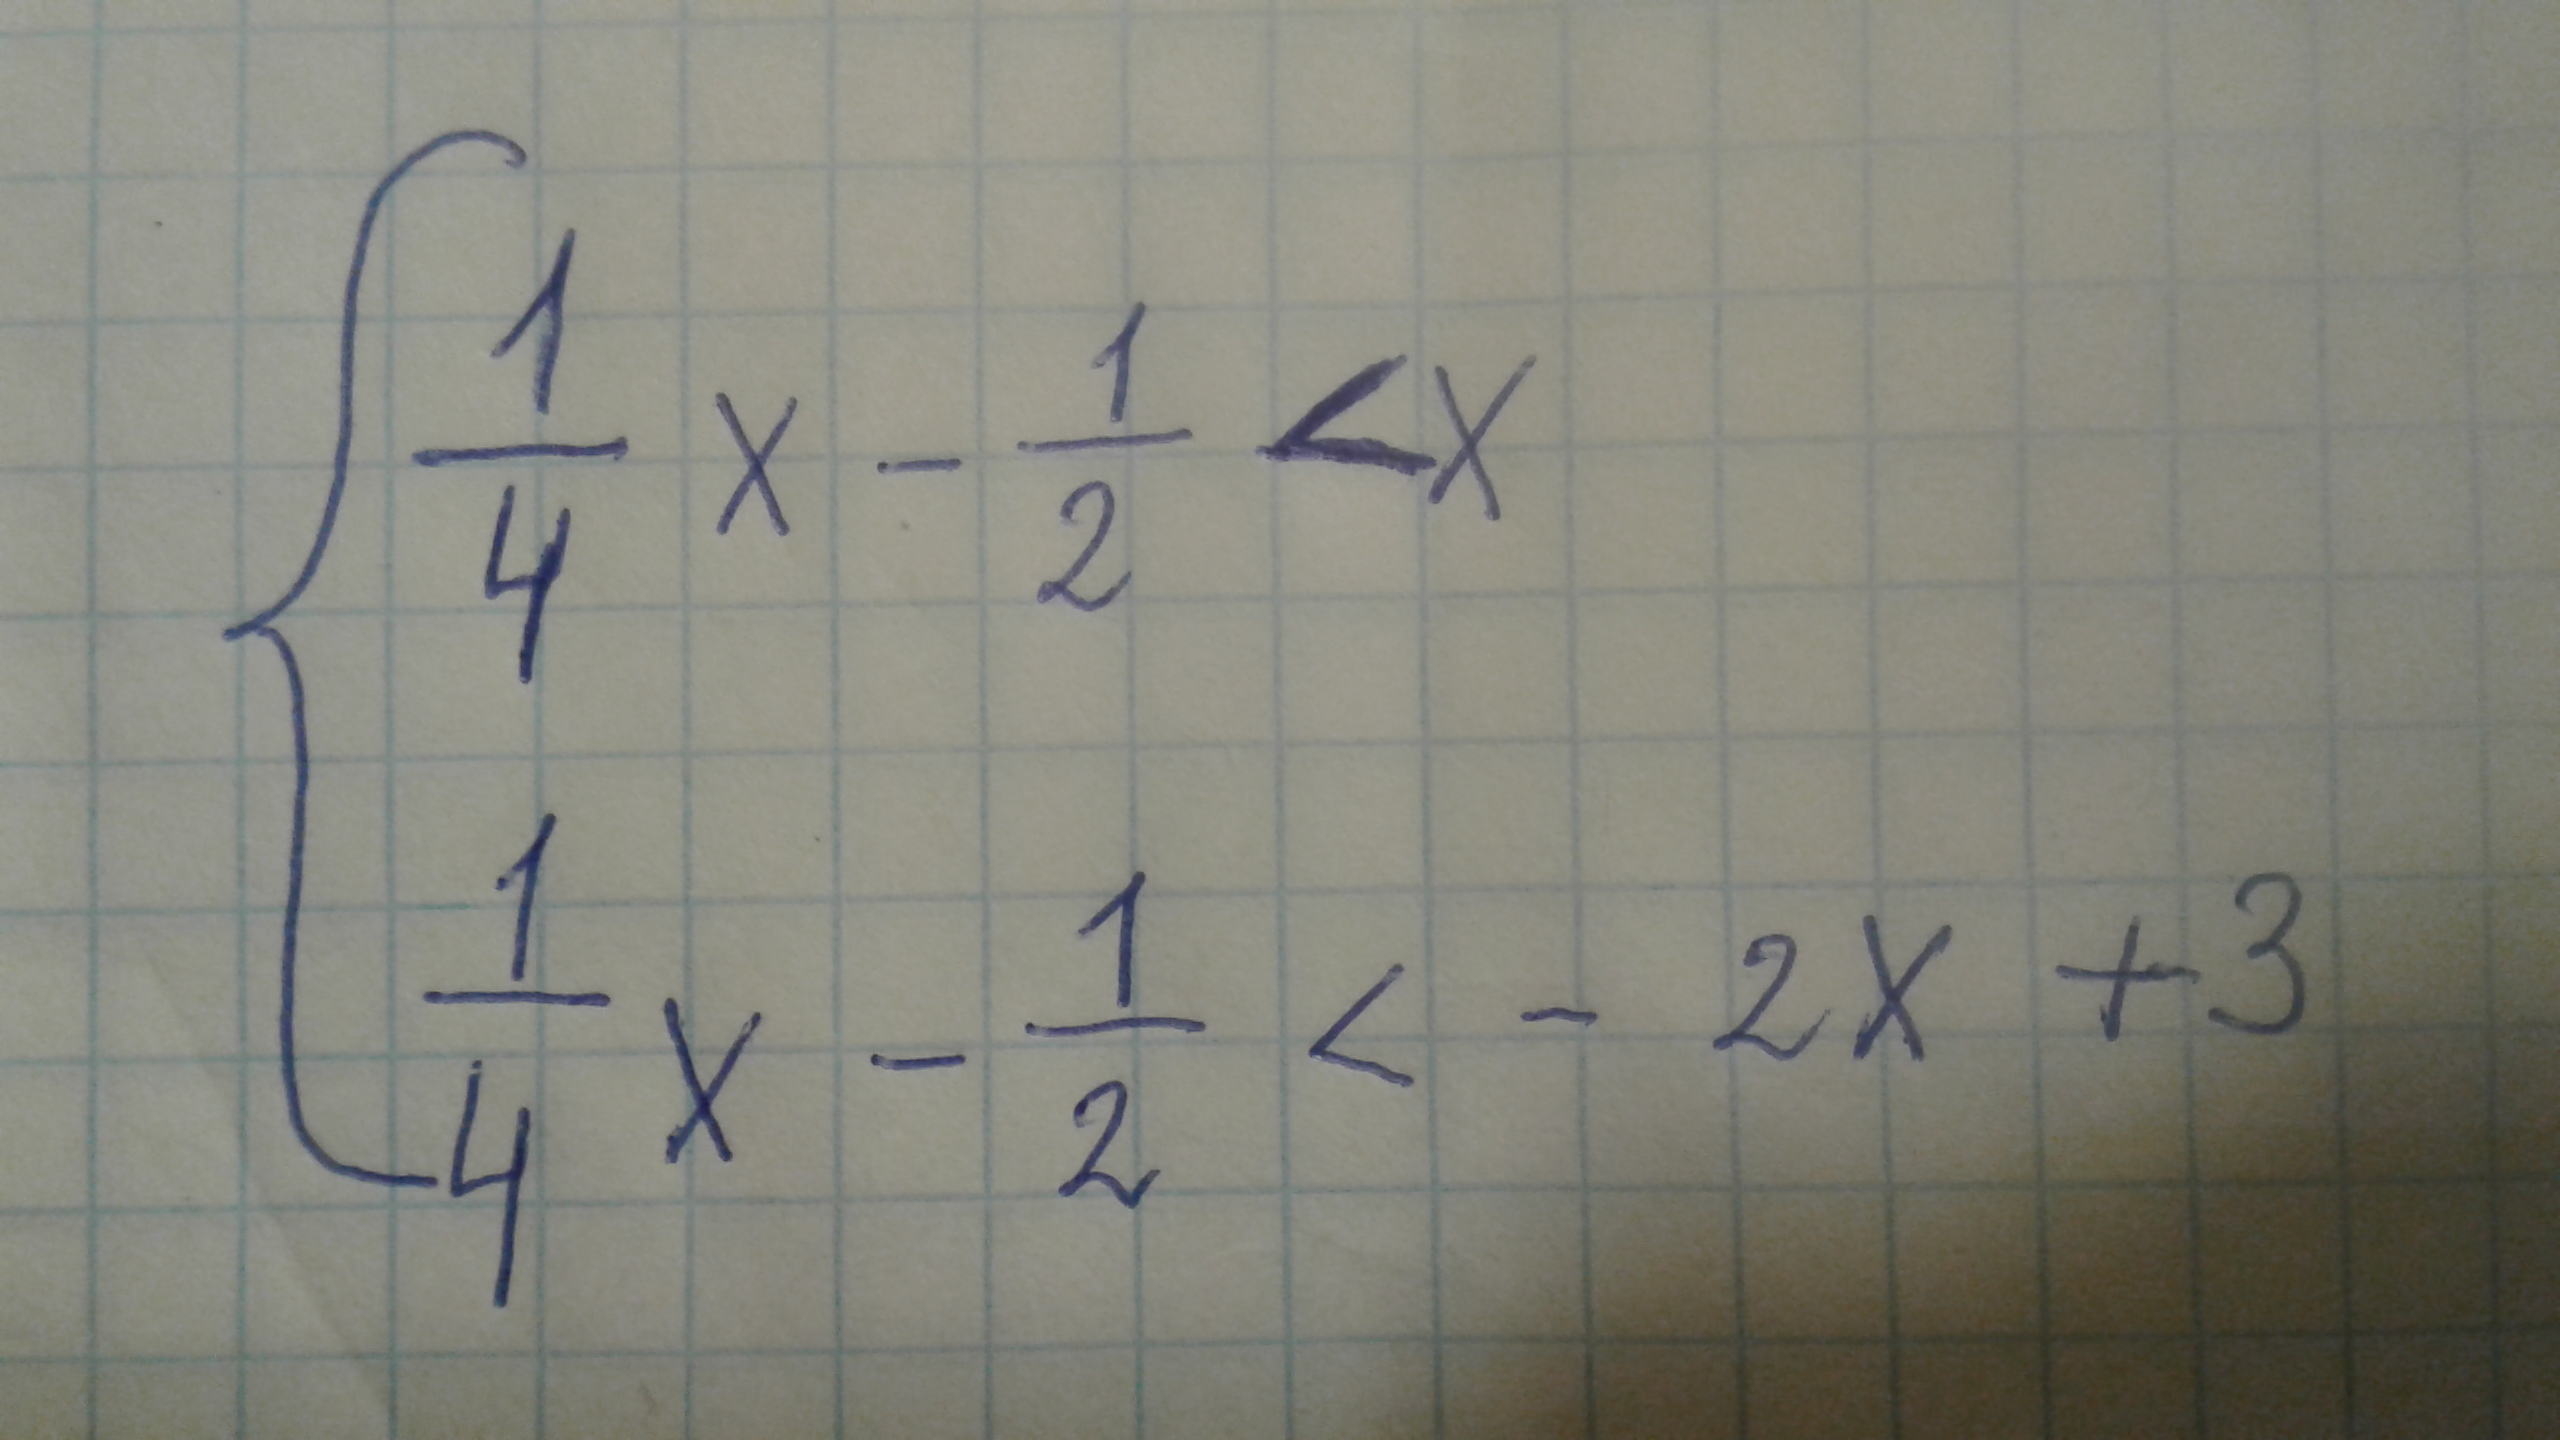 1/4 x - 1/2 < x
1/4 x - 1/2 < - 2x + 3